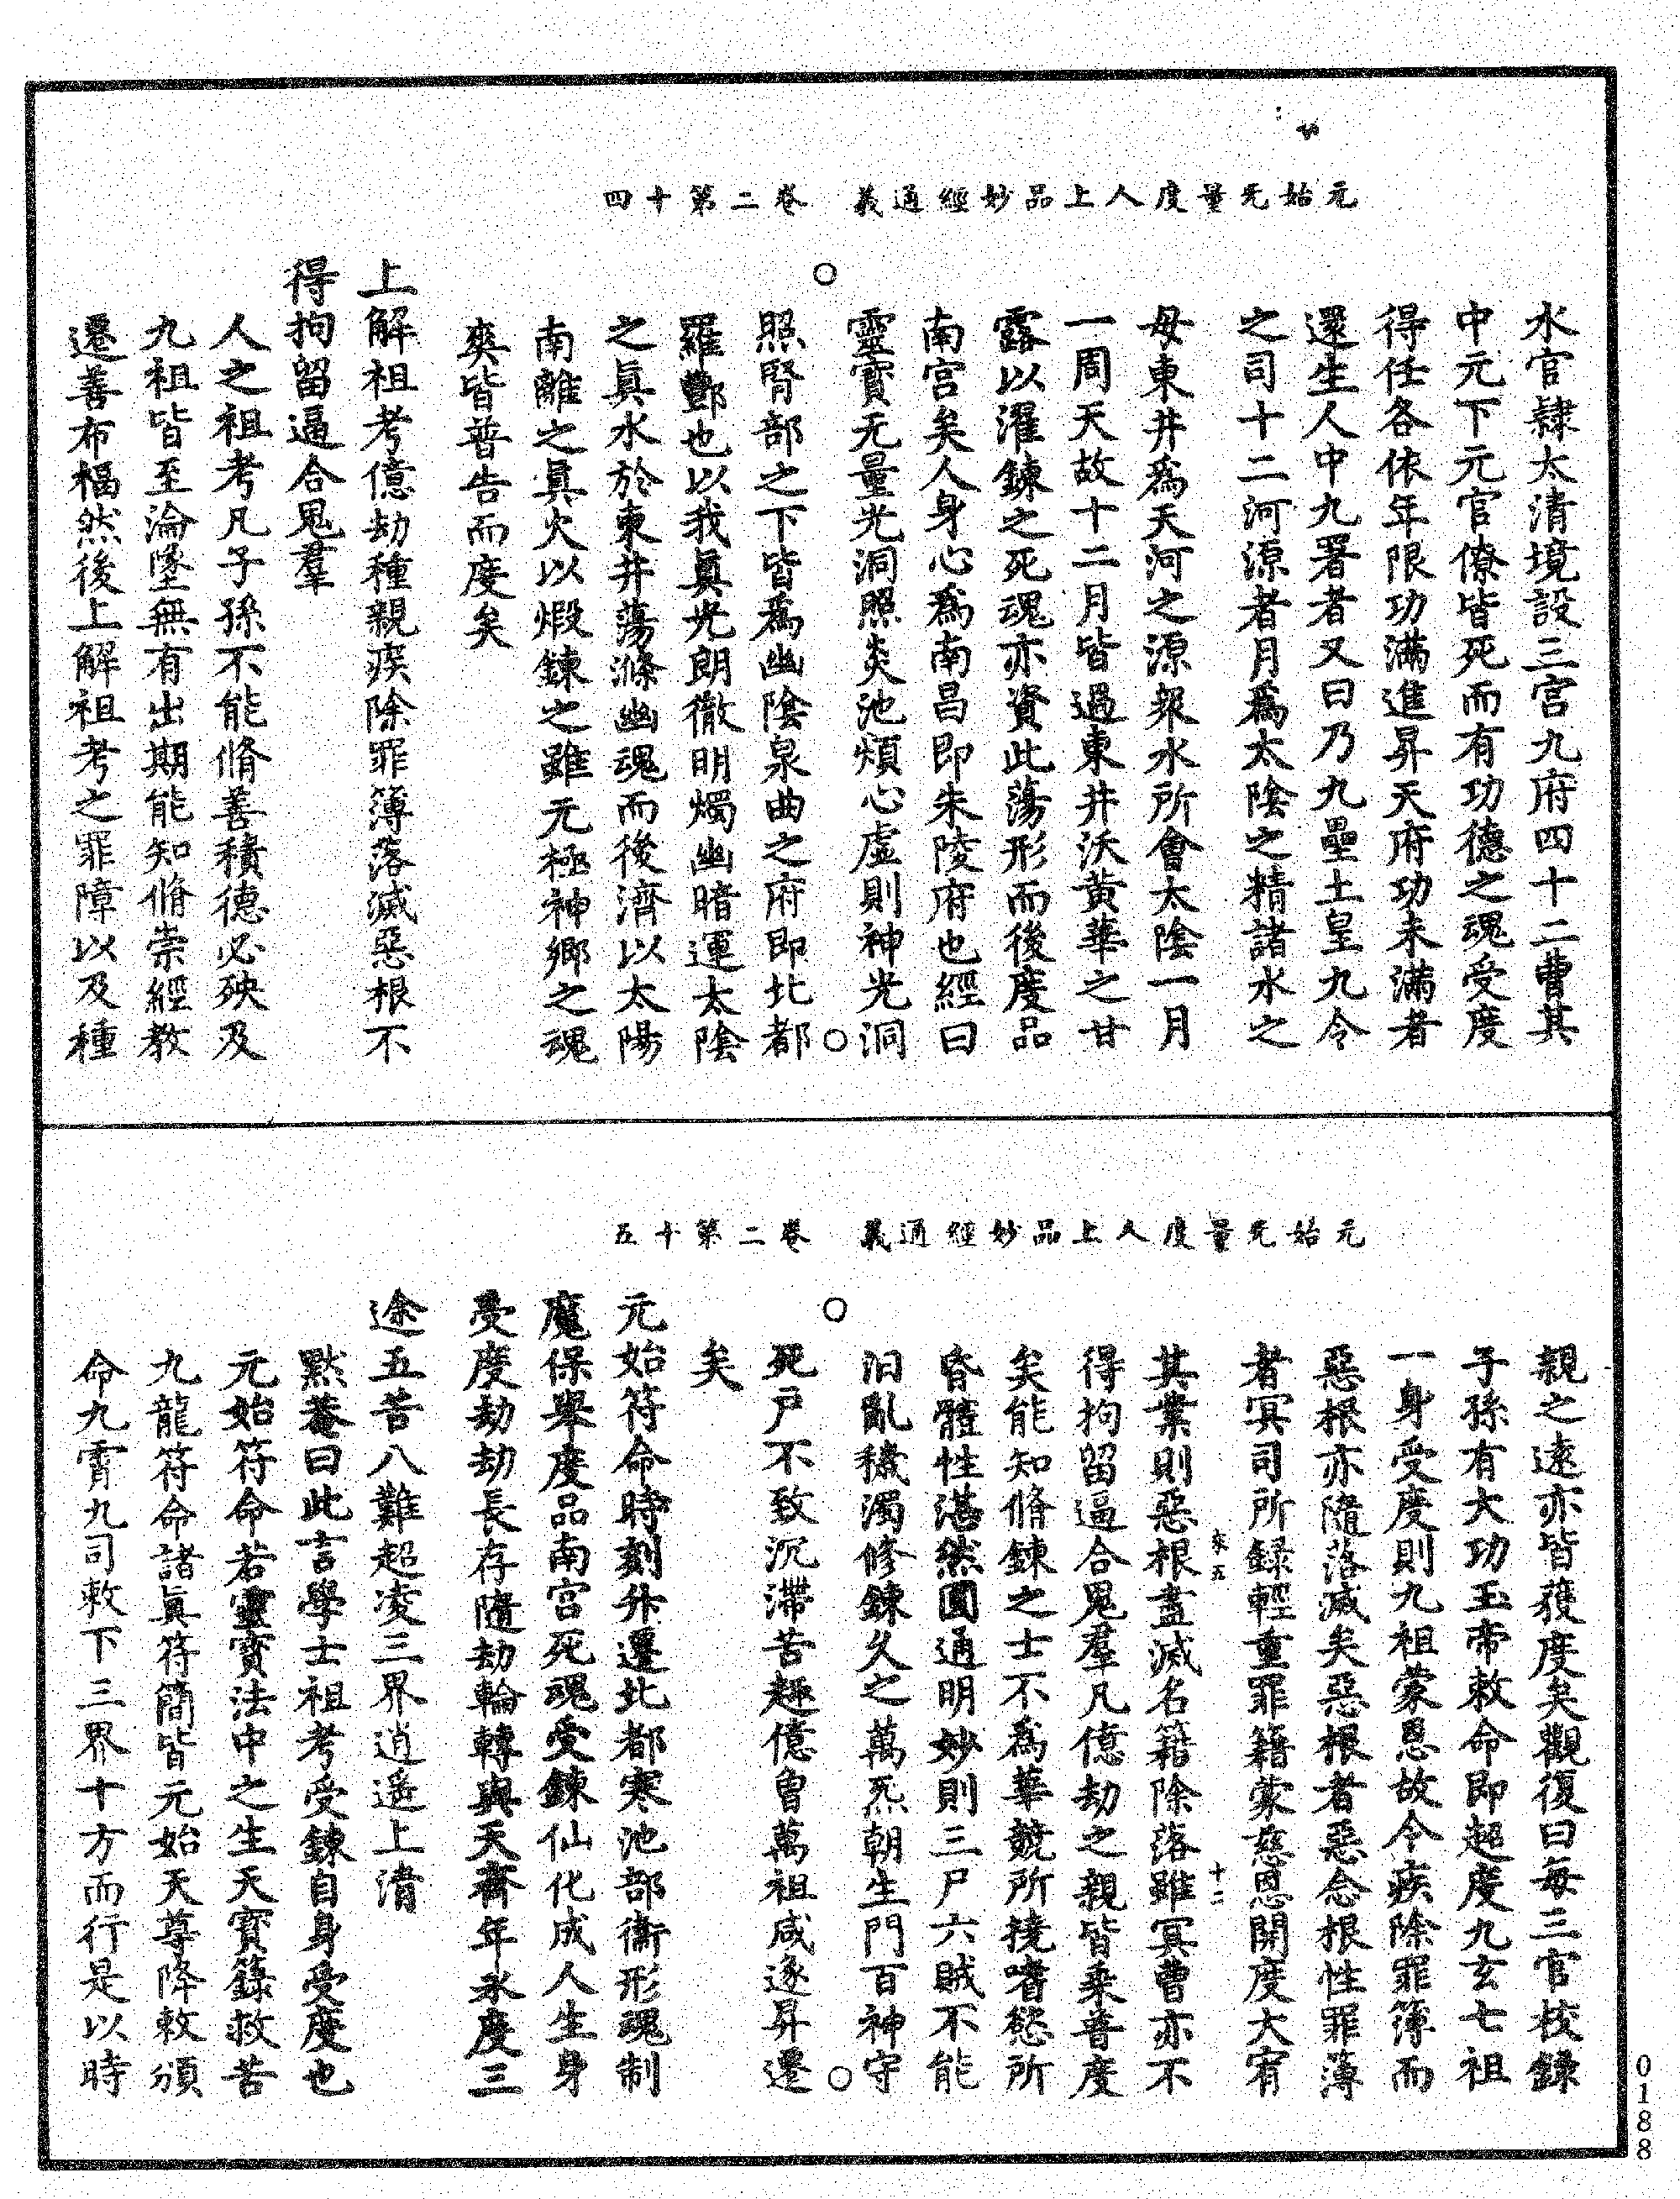 元始无量度人上品妙經通義　卷二第十四
水官隸太清境設三宮九府四十二曹其
中元下元官僚皆死而有功德之魂受度
得任各依年限功滿進昇天府功未滿者
還生人中九署者又曰乃九壘土皇九令
之司十二河源者月爲太陰之精諸水之
母東井爲天河之源衆水所會太陰一月
一周天故十二月皆過東井沃黃華之甘
露以濯鍊之死魂亦資此蕩形而後度品
南宮矣人身心爲南昌即朱陵府也經曰
靈寶无量光洞照炎池煩心虛則神光洞
照腎部之下皆爲幽陰泉曲之府即北都
羅酆也以我眞光朗徹明燭幽暗運太陰
之眞水於東井蕩滌幽魂而後濟以太陽
南離之眞火以煅鍊之雖元極神鄉之魂
爽皆普告而度矣
上解祖考億劫種親疾除罪簿落滅惡根不
得拘留逼合鬼羣
人之祖考凡子孫不能脩善積德必殃及
九祖皆至淪墜無有出期能知脩崇經教
遷善布福然後上解祖考之罪障以及種
元始无量度人上品妙經通義　卷二第十五
親之遠亦皆獲度矣觀復曰每三官校錄
子孫有大功玉帝敕命即超度九玄七祖
一身受度則九祖蒙恩故令疾除罪簿而
惡根亦隨落滅矣惡根者惡念根性罪薄
者冥司所録輕重罪籍蒙慈恩開度大宥
其業則惡根盡滅名籍除落雖冥曹亦不
得拘留逼合鬼羣凡億劫之親皆乘普度
矣能知脩鍊之士不爲華競所撓嗜慾所
昏體性湛然圓通明妙則三尸六賊不能
汨亂穢濁修鍊久之萬炁朝生門百神守
死戶不致沉滯苦趣億曾萬祖咸逐昇遷
矣
元始符命時刻升遷北都寒池部衛形魂制
魔保舉度品南宮死魂受鍊仙化成人生身
受度劫劫長存隨劫輪轉與天齊年永度三
途五苦八難超凌三界逍遥上清
默菴曰此言學士祖考受鍊自身受度也
元始符命若靈寶法中之生天寶籙救苦
九龍符命諸眞符簡皆元始天尊降敕頒
命九霄九司敕下三界十方而行是以時
十二
0188